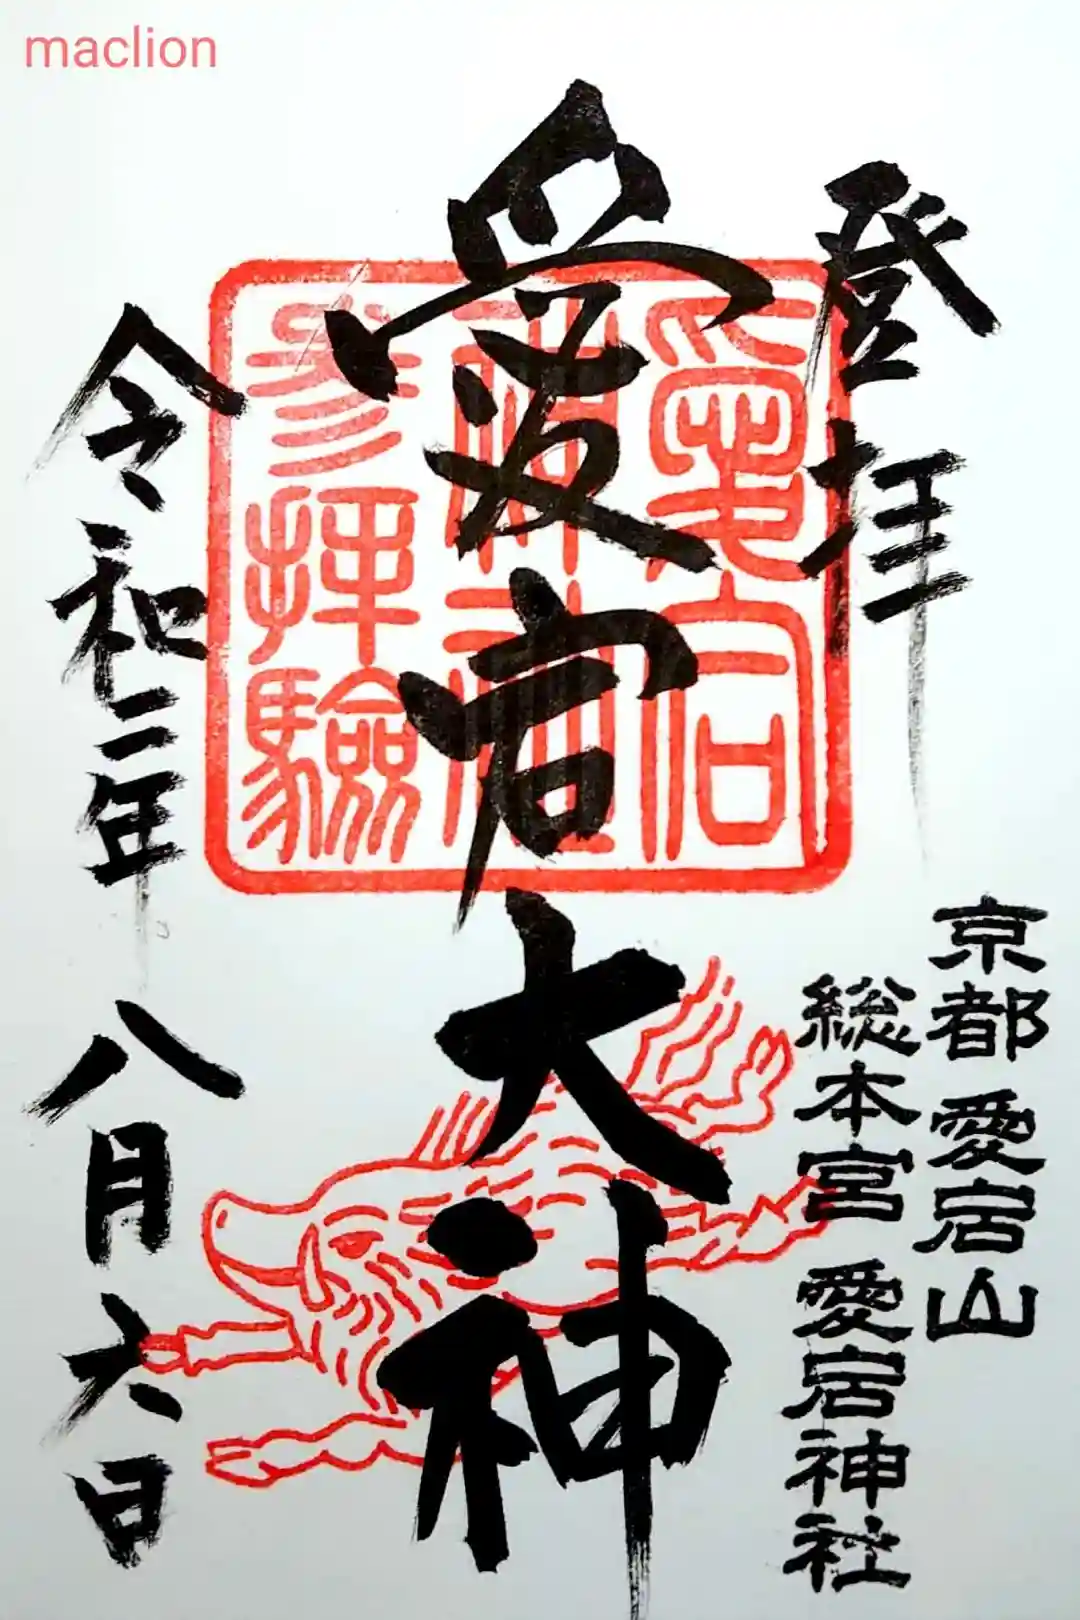 maclion
登拝
愛宕大神
令和二年八月六日
愛宕
神社
参拝験
京都愛宕山
総本宮愛宕神社